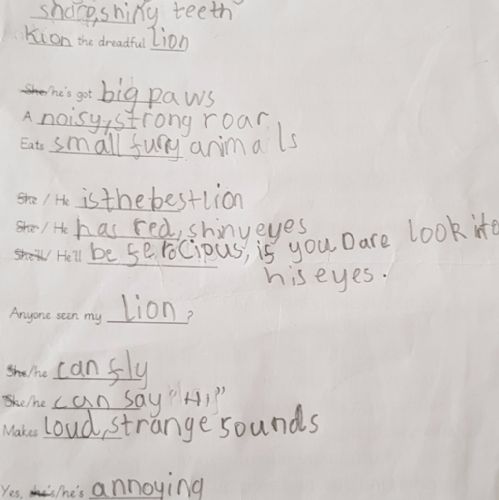 sharp,shiny teeth
Kion the dreadful lion
She/he's got big paws
A noisy,strong roar
Eats small fury animals
She / He is the best lion
She / He has red, shiny eyes
She'll/ He'll be serocipus, is you Dare look into
his eyes.
Anyone seen my lion?
She/he can sly
She/he can say "Hi"
Makes loud,strange sounds
Yes, she's/he's annoying